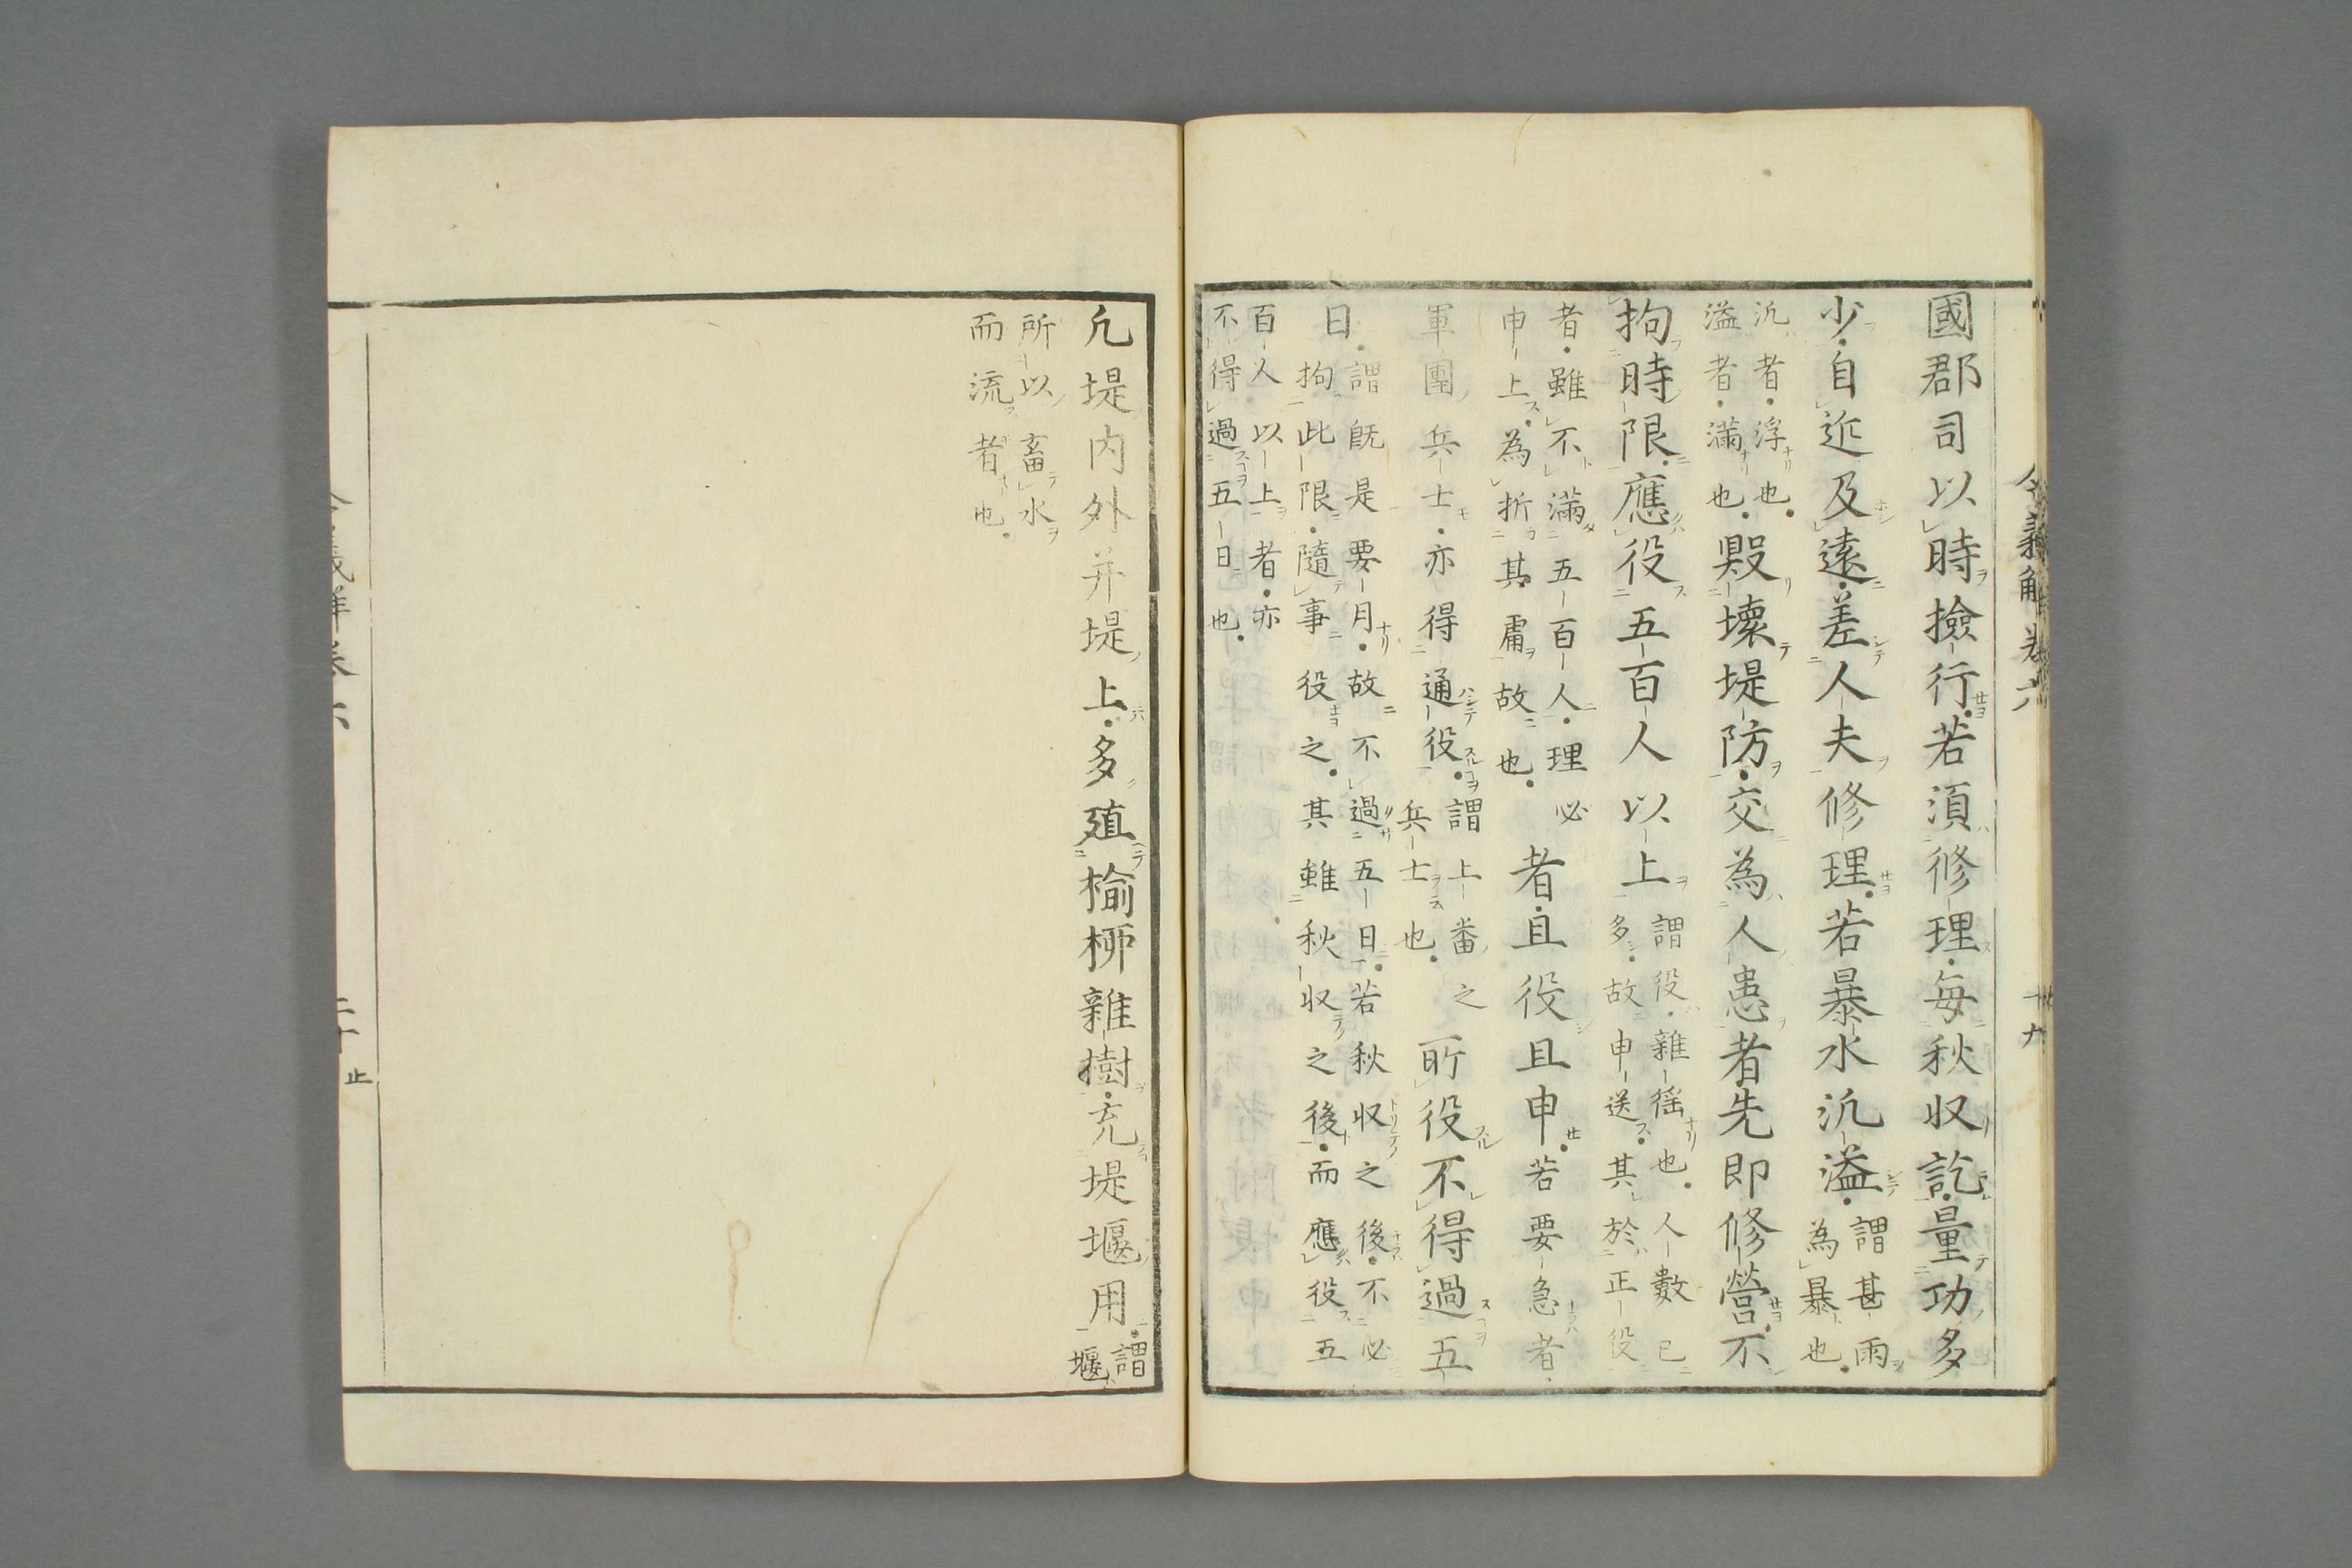 國郡司以時撿行若須修理毎秋収訖量功多
少自近及遠差人夫修理若暴水汎溢謂甚雨
為暴也
汎者浮也
溢者滿也毀壞堤防交為人患者先即修營不
拘時限應役五百人以上謂役雜徭也人數已
多故申送其於正役
者雖不滿五百人理必
申上為折其庸故也者且役且申若要急者
軍團兵士亦得通役謂上番之
兵士也所役不得過五
日謂既是要月故不過五日若秋収之後不必
拘此限隨事役之其雖秋収之後而應役五
百人以上者亦
不得過五日也
令義解卷六
十九
凡堤内外并堤上多殖榆柳雜樹充堤堰用謂
堰
所以畜水
而流者也
二十止